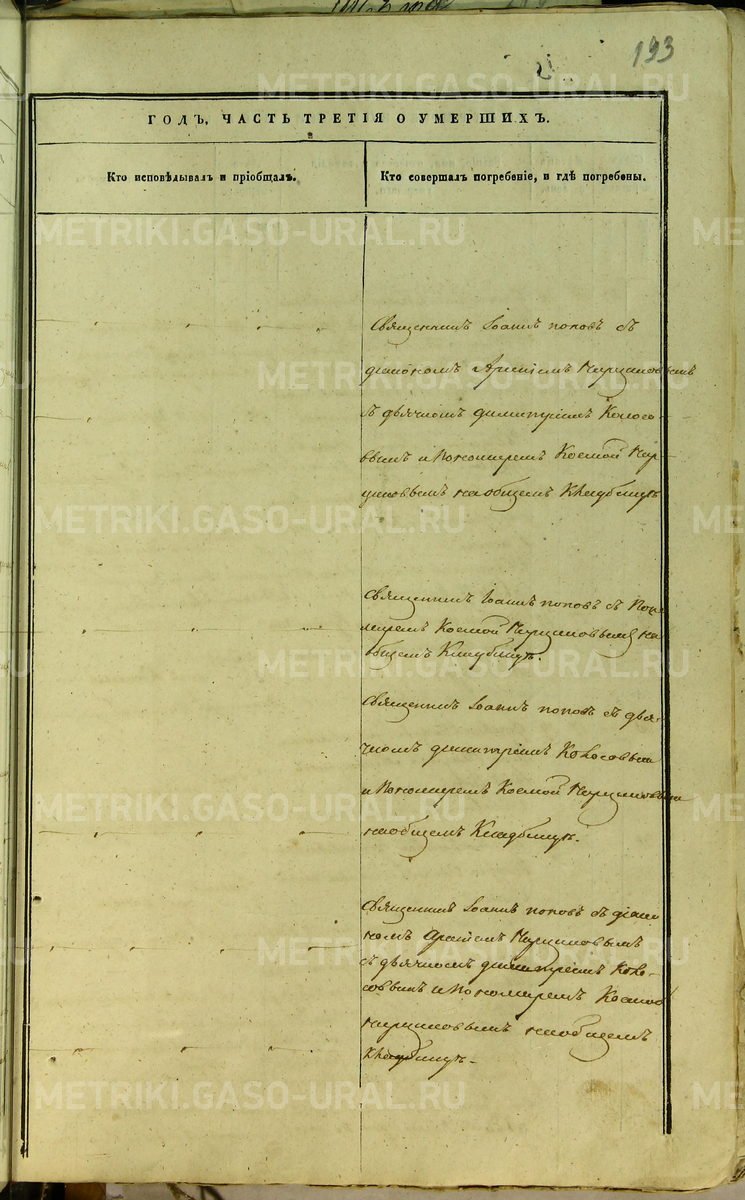 193
ГОДЪ, ЧАСТЬ ТРЕТІЯ О УМЕРШИХЪ.
Кто исповѣдывалъ и пріобщалъ.
Кто совершалъ погребеніе, и гдѣ погребены.
Священникъ Іоаннъ поповъ съ
діакономъ
съ дьячкомъ димитріемъ Колосо-
вымъ и Пономаремъ Космой
на общемъ Кладбищѣ
Священникъ Іоаннъ поповъ съ Поно-
маремъ Космой на
общемъ Кладбищѣ.
Священникъ Іоаннъ поповъ съ дья-
чкомъ димитріемъ Колосовымъ
и Пономаремъ Космой
на общемъ Кладбищѣ.
Священникъ Іоаннъ поповъ съ діако-
номъ
съ дьячкомъ димитріемъ Коло-
совымъ и Пономаремъ Космой
на общемъ
Кладбищѣ.
METRIKI.GASO-URAL.RU